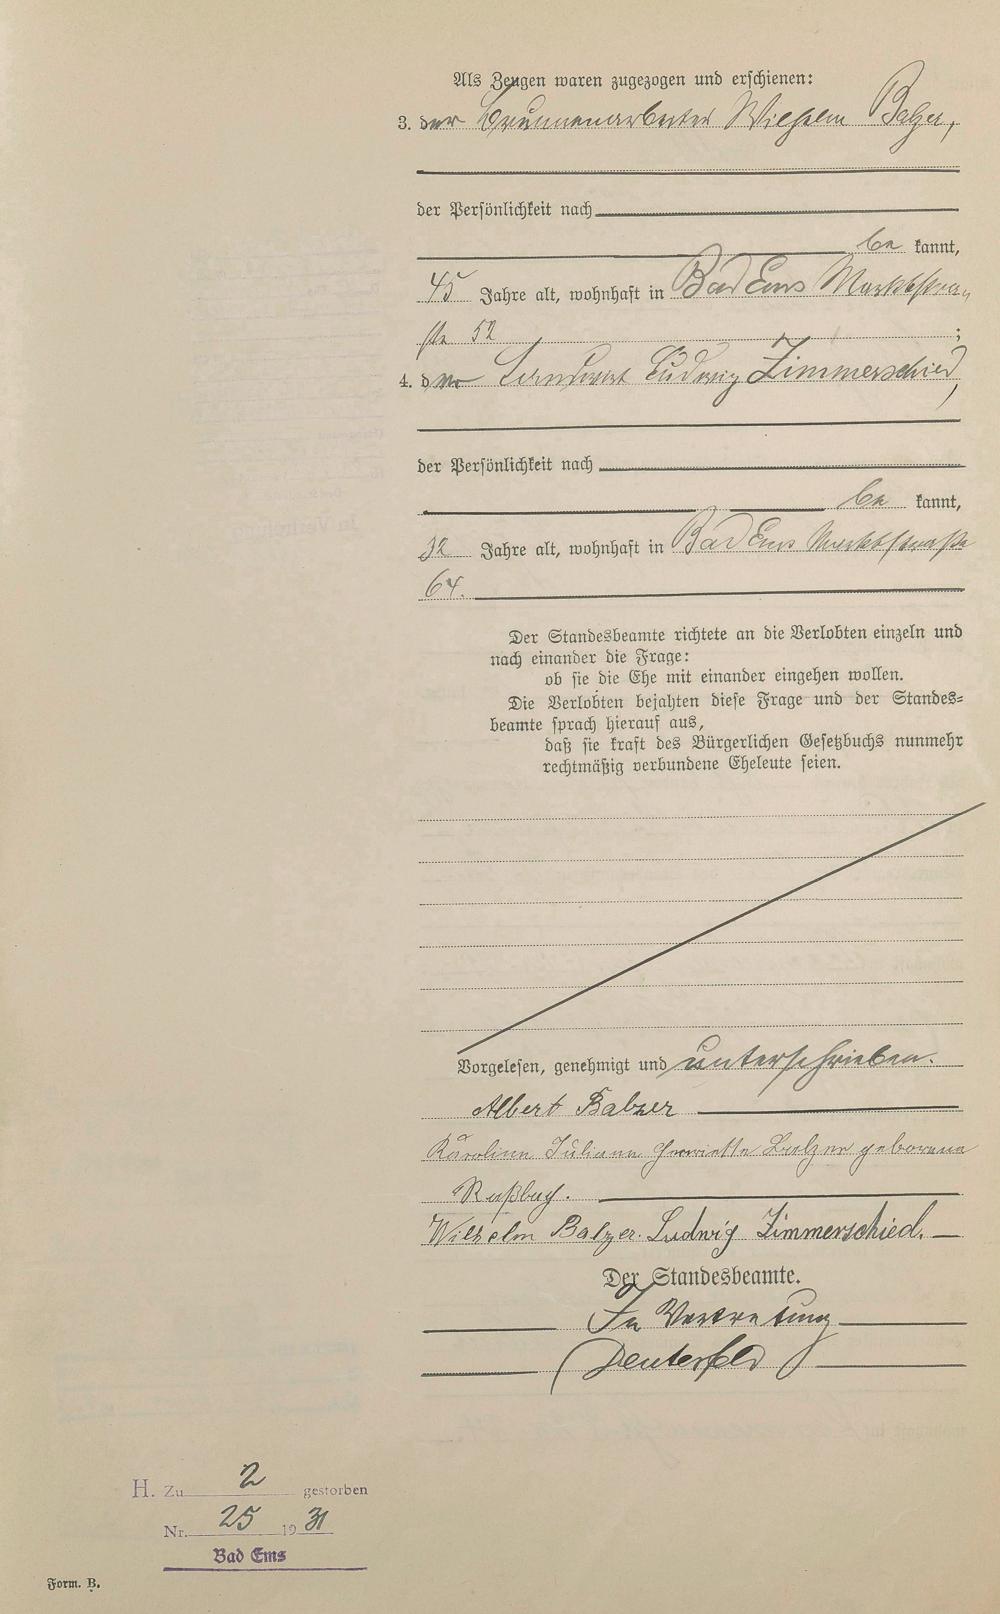 Als Zeugen waren zugezogen und erschienen:
3. der Brunnenarbeiter Wilhelm Balzer,
der Persönlichkeit nach
be kannt,
45 Jahre alt, wohnhaft in Bad Ems Marktstra-
ße 52 ;
4. der Landwirt Ludwig Zimmerschied,
der Persönlichkeit nach
be kannt,
32 Jahre alt, wohnhaft in Bad Ems Marktstraße
64.
Der Standesbeamte richtete an die Verlobten einzeln und
nach einander die Frage:
ob sie die Ehe mit einander eingehen wollen.
Die Verlobten bejahten diese Frage und der Standes-
beamte sprach hierauf aus,
daß sie kraft des Bürgerlichen Gesetzbuchs nunmehr
rechtmäßig verbundene Eheleute seien.
Vorgelesen, genehmigt und unterschrieben.
Albert Balzer
Karoline Juliane Henriette Balzer geborene
Wilhelm Balzer. Ludwig Zimmerschied.
Der Standesbeamte.
In Vertretung
H. Zu 2 gestorben
Nr. 25 1931
Bad Ems
Form. B.